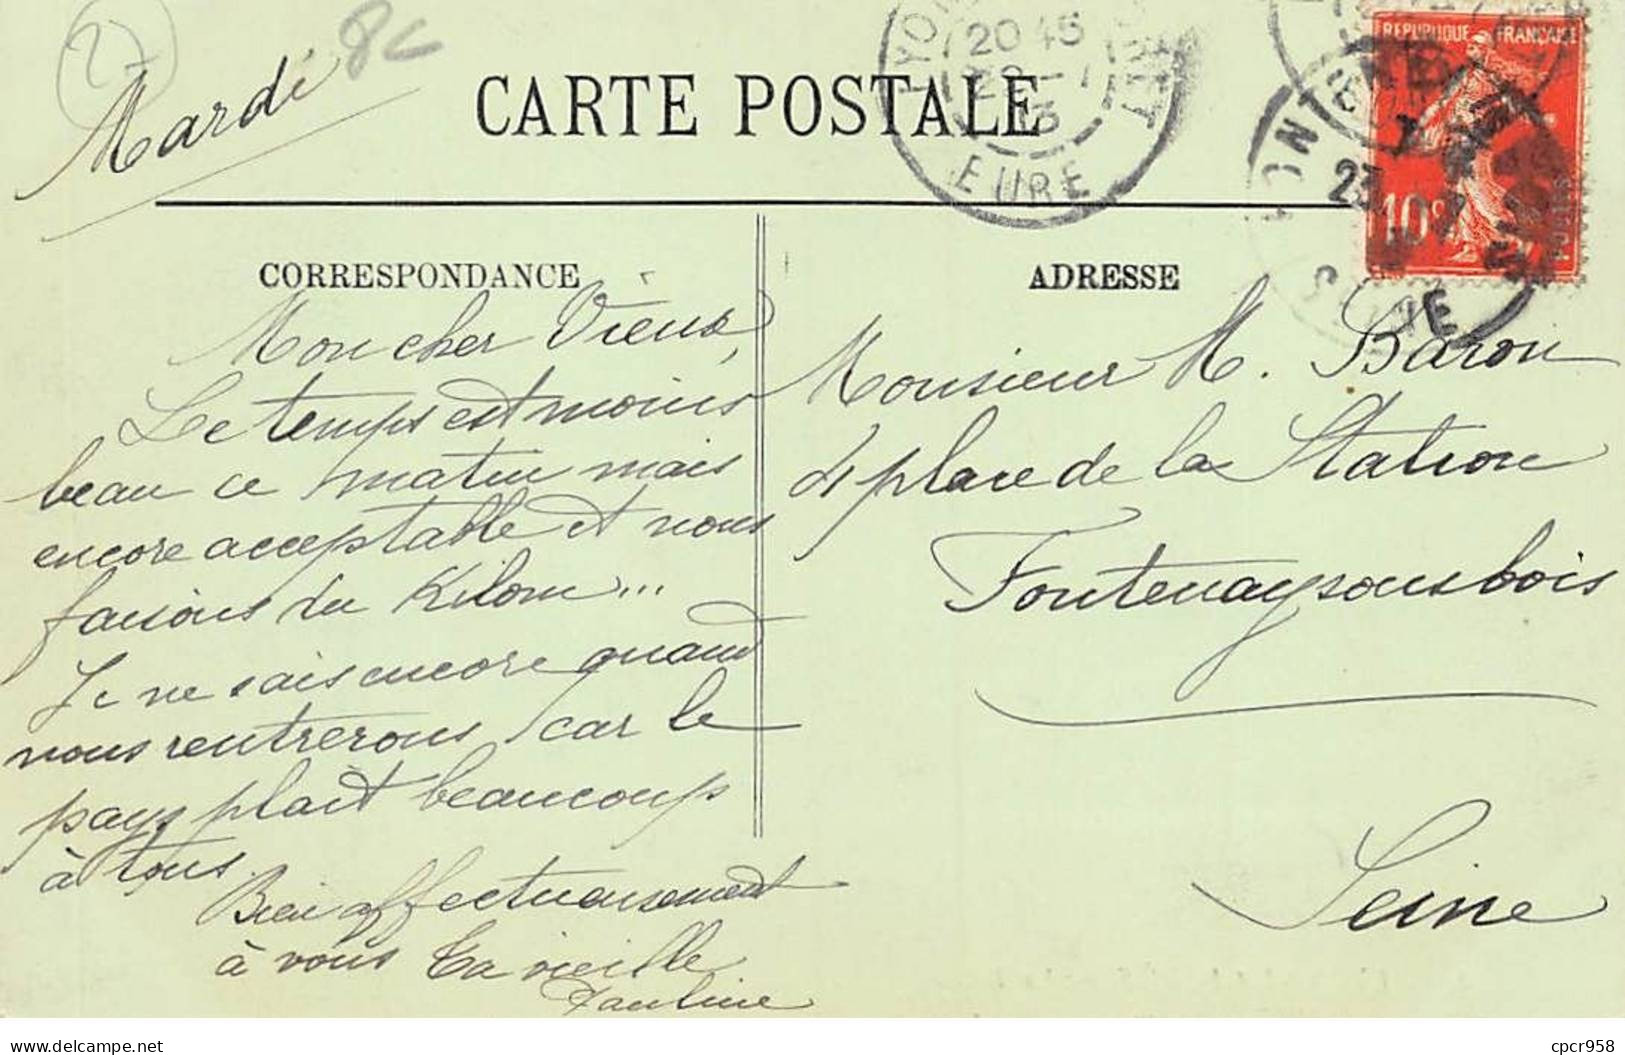 27
8c
Mardi
CARTE POSTALE
20 45
22
13
EURE
REPUBLIQUE FRANÇAISE
10c
POSTES
23
SEINE
CORRESPONDANCE
Mon cher Vieux,
Le temps est moins
beau ce matin mais
encore acceptable et nous
faisons du Kilom...
Je ne sais encore quand
nous rentrerons car le
pays plait beaucoup
à tous.
Bien affectueusement
à vous Ta vieille
Pauline
ADRESSE
Monsieur M. Baron
4 place de la Station
Fontenaysousbois
Seine
delcampe.net
cpcr958